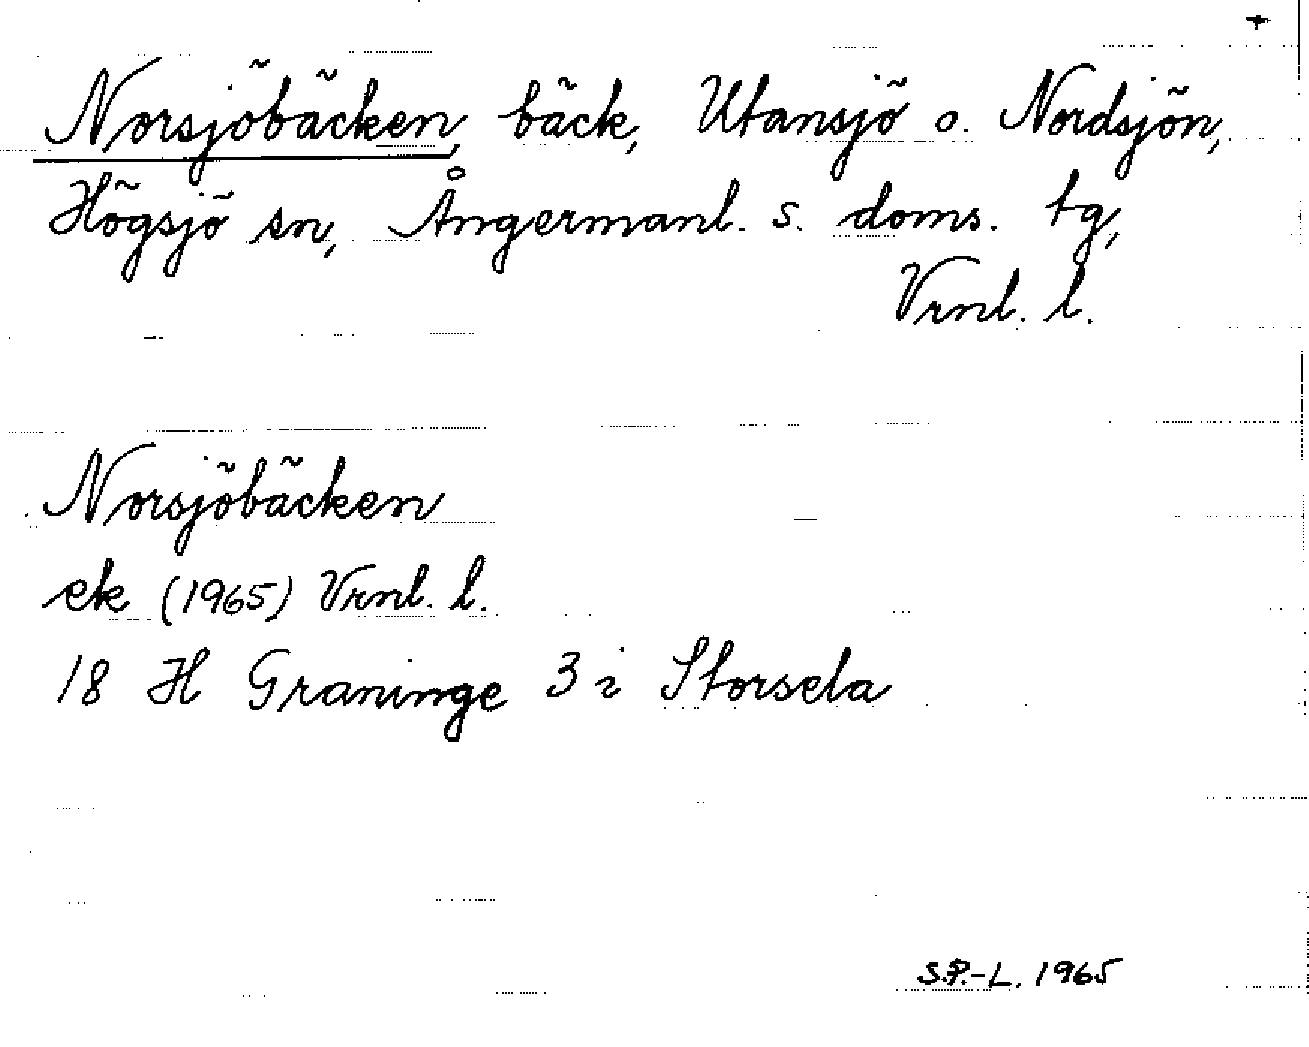 Norsjöbäcken, bäck, Utansjö o. Nordsjön,
Högsjö sn, Ångermanl. s. doms. tg,
Vrnl. l.
Norsjöbäcken
ek (1965) Vrnl. l.
18 H Graninge 3 i Storsela
S.P.-L. 1965